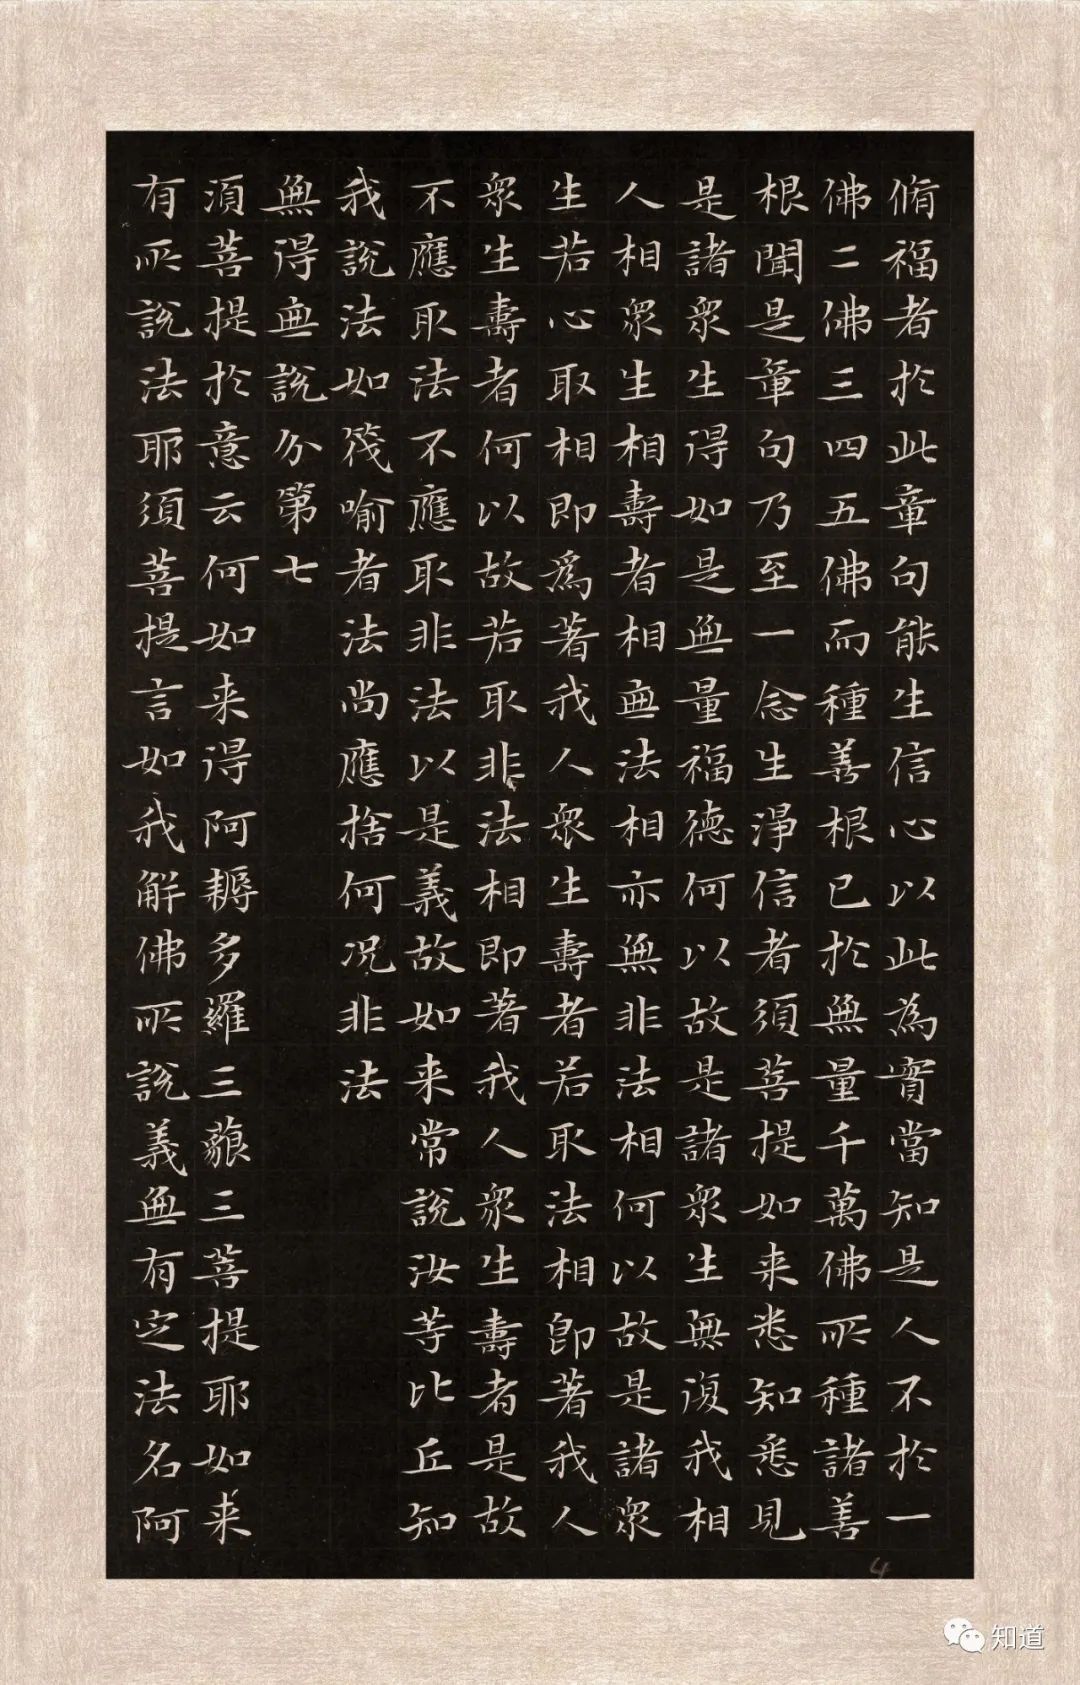 脩福者於此章句能生信心以此為實當知是人不於一
佛二佛三四五佛而種善根已於無量千萬佛所種諸善
根聞是章句乃至一念生淨信者須菩提如来悉知悉見
是諸眾生得如是無量福德何以故是諸眾生無復我相
人相眾生相壽者相無法相亦無非法相何以故是諸眾
生若心取相即爲著我人眾生壽者若取法相即著我人
眾生壽者何以故若取非法相即著我人眾生壽者是故
不應取法不應取非法以是義故如来常說汝等比丘知
我說法如筏喻者法尚應捨何况非法
無得無說分第七
須菩提於意云何如来得阿耨多羅三藐三菩提耶如来
有所說法耶須菩提言如我解佛所說義無有定法名阿
4
知道